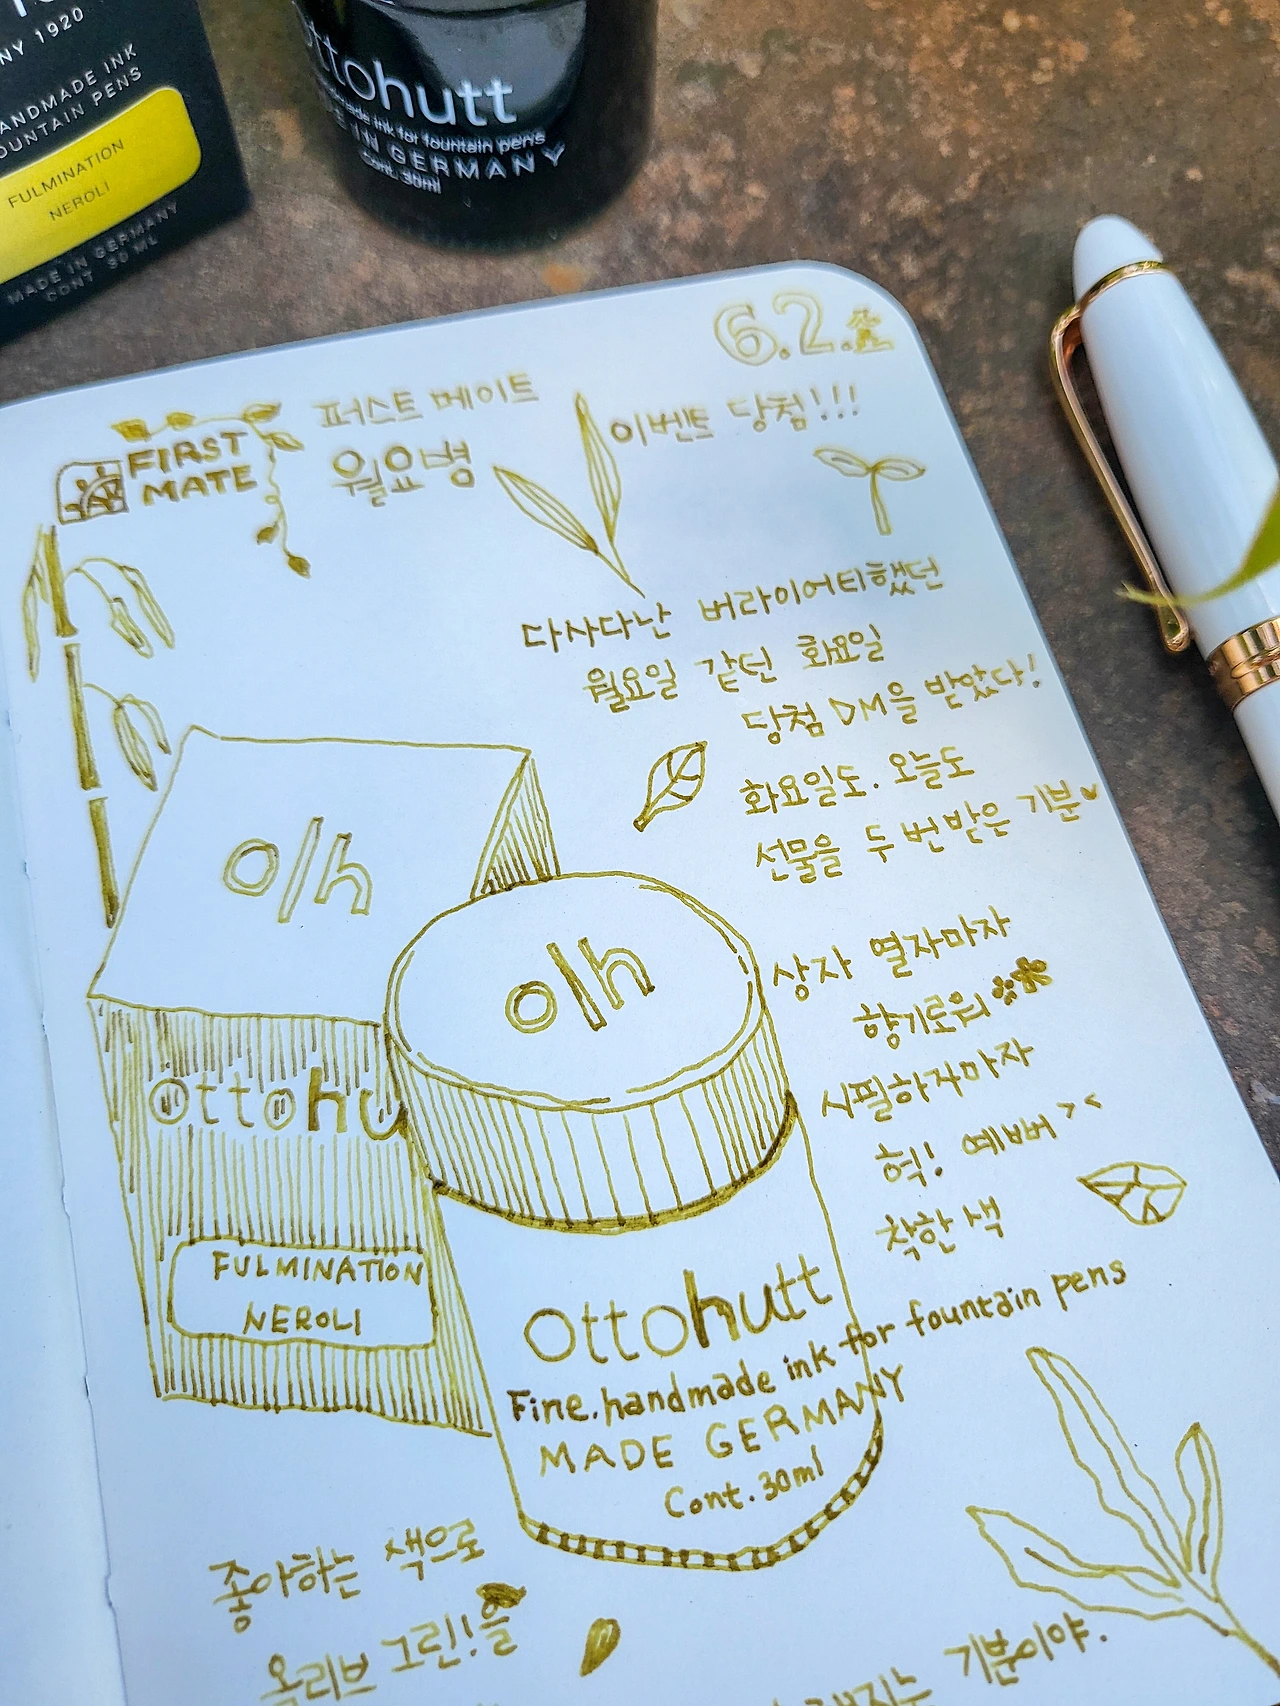 NY 1920
ANDMADE INK
OUNTAIN PENS
FULMINATION
NEROLI
MADE IN GERMANY
CONT 30 ML
ottohutt
ink for fountain pens
IN GERMANY
Cont. 30ml
6.2.
FIRST
MATE
퍼스트 메이트
월요병
이벤트 당첨!!!
다사다난 버라이어티했던
월요일 같던 화요일
당첨 DM을 받았다!
화요일도. 오늘도
선물을 두 번 받은 기분
상자 열자마자
향기로워
시필하자마자
헉! 예뻐 > <
착한 색
o/h
o/h
ottohu
FULMINATION
NEROLI
ottohutt
Fine.handmade ink for fountain pens
MADE GERMANY
Cont. 30ml
좋아하는 색으로
올리브 그린!을
기분이야.